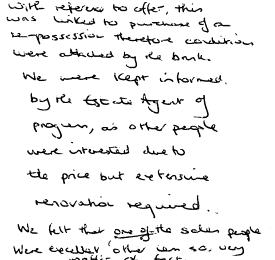 with reference to offer, this
was linked to purchase of a
re-possession therefore conditions
were attached by the bank.
We were kept informed
by the Estate Agent of
progress, as other people
were interested due to
the price but extensive
renovation required.
We felt that one of the sales people
were excellent, other was so. very
matter of fact.